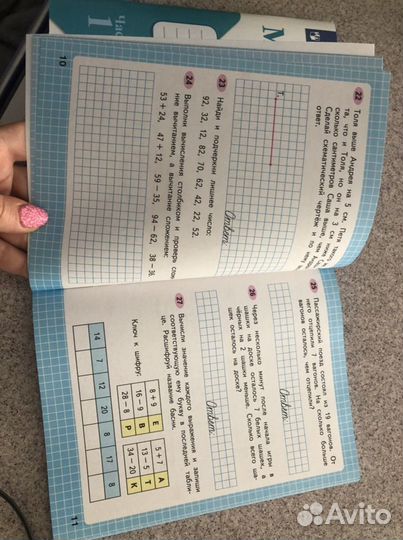 Час
1
М
22 Толя выше Андрея на 5 см. Петя
та, что и Толя, но он на 3 см
сколько сантиметров Саша выше, чем
Сделай схематический чертёж и по
ответ.
Т.
Ответ:
23 Найди и подчеркни лишнее число:
92, 32, 12, 82, 70, 62, 42, 22, 52.
24 Выполни вычисления столбиком и проверь сложе-
ние вычитанием, а вычитание сложением:
53 + 24, 47 + 12, 59 − 35, 94 − 62, 38 −
10
25 Пассажирский поезд состоял из 19 вагонов. От
него отцепили 7 вагонов. На сколько больше
вагонов осталось, чем отцепили?
Ответ:
26 Через несколько минут после начала игры в
шашки на доске осталось 7 белых шашек, а
чёрных на 2 шашки меньше. Сколько всего ша-
шек осталось на доске?
Ответ:
27 Вычисли значение каждого выражения и запиши
соответствующую ему букву в последней табли-
це. Расшифруй название басни.
Ключ к шифру:
8 + 9 Е 5 + 7 А
16 − 9 В 13 − 5 Т
28 − 8 Р 34 − 20 К
14 7 12 20 8 17 8
11
Avito